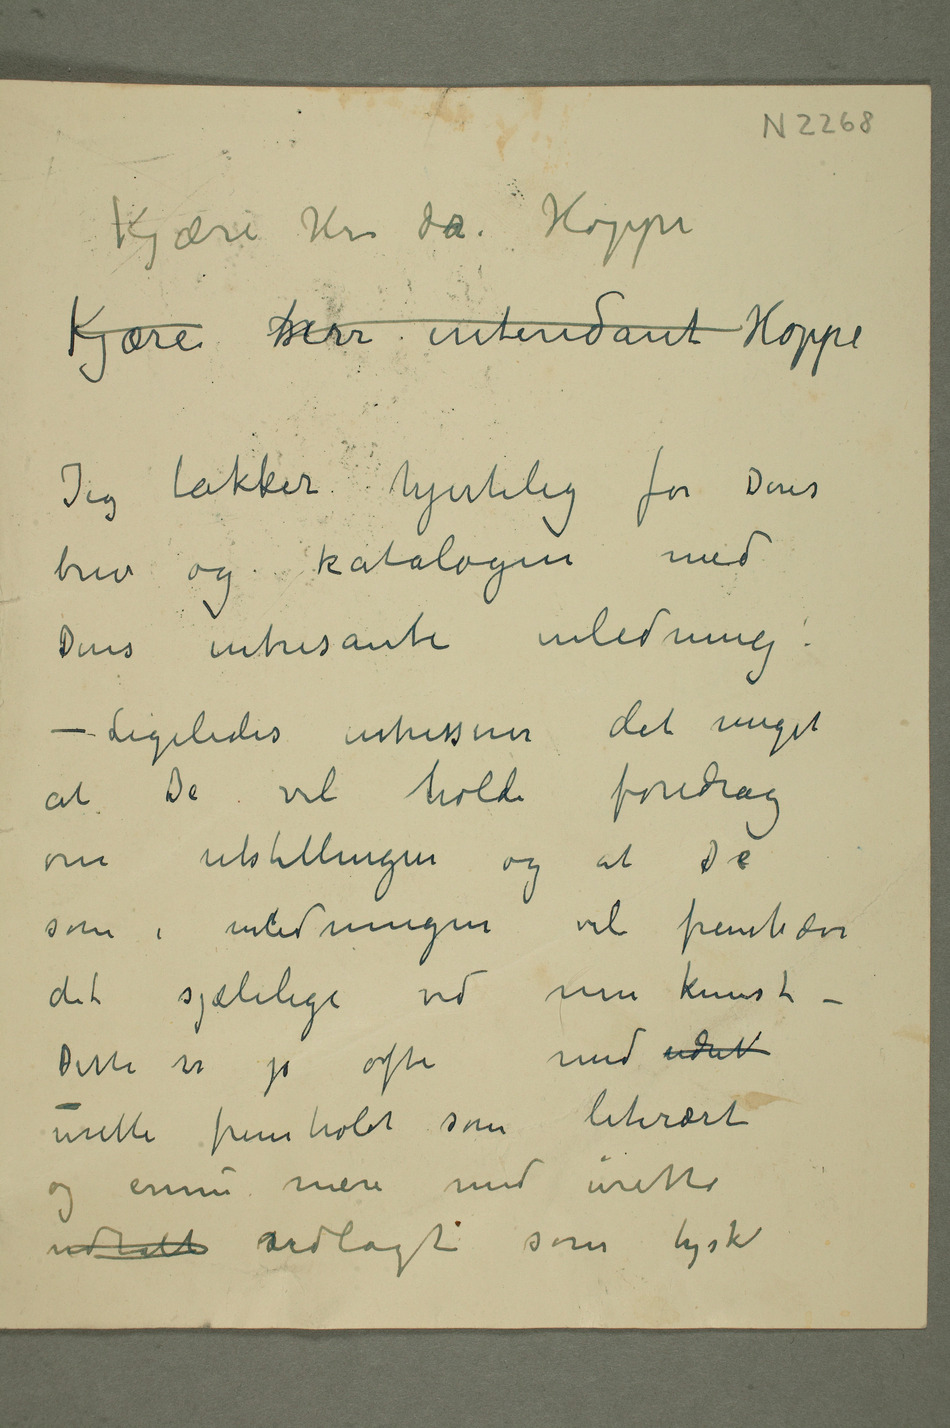 N 2268
Kjære Hr dr. Hoppe
Kjære herr intendant Hoppe
Jeg takker hjertelig for Deres
brev og katalogen med
Deres intresante inledning.
– Ligeledes intresserer det meget
at De vil holde foredrag
om utstillingen og at De
som i inledningen vil fremhæve
det sjælelige ved min kunst –
Dette er jo ofte med
urette fremholdt som literært
og ennu mere med urette
udlagt som tysk